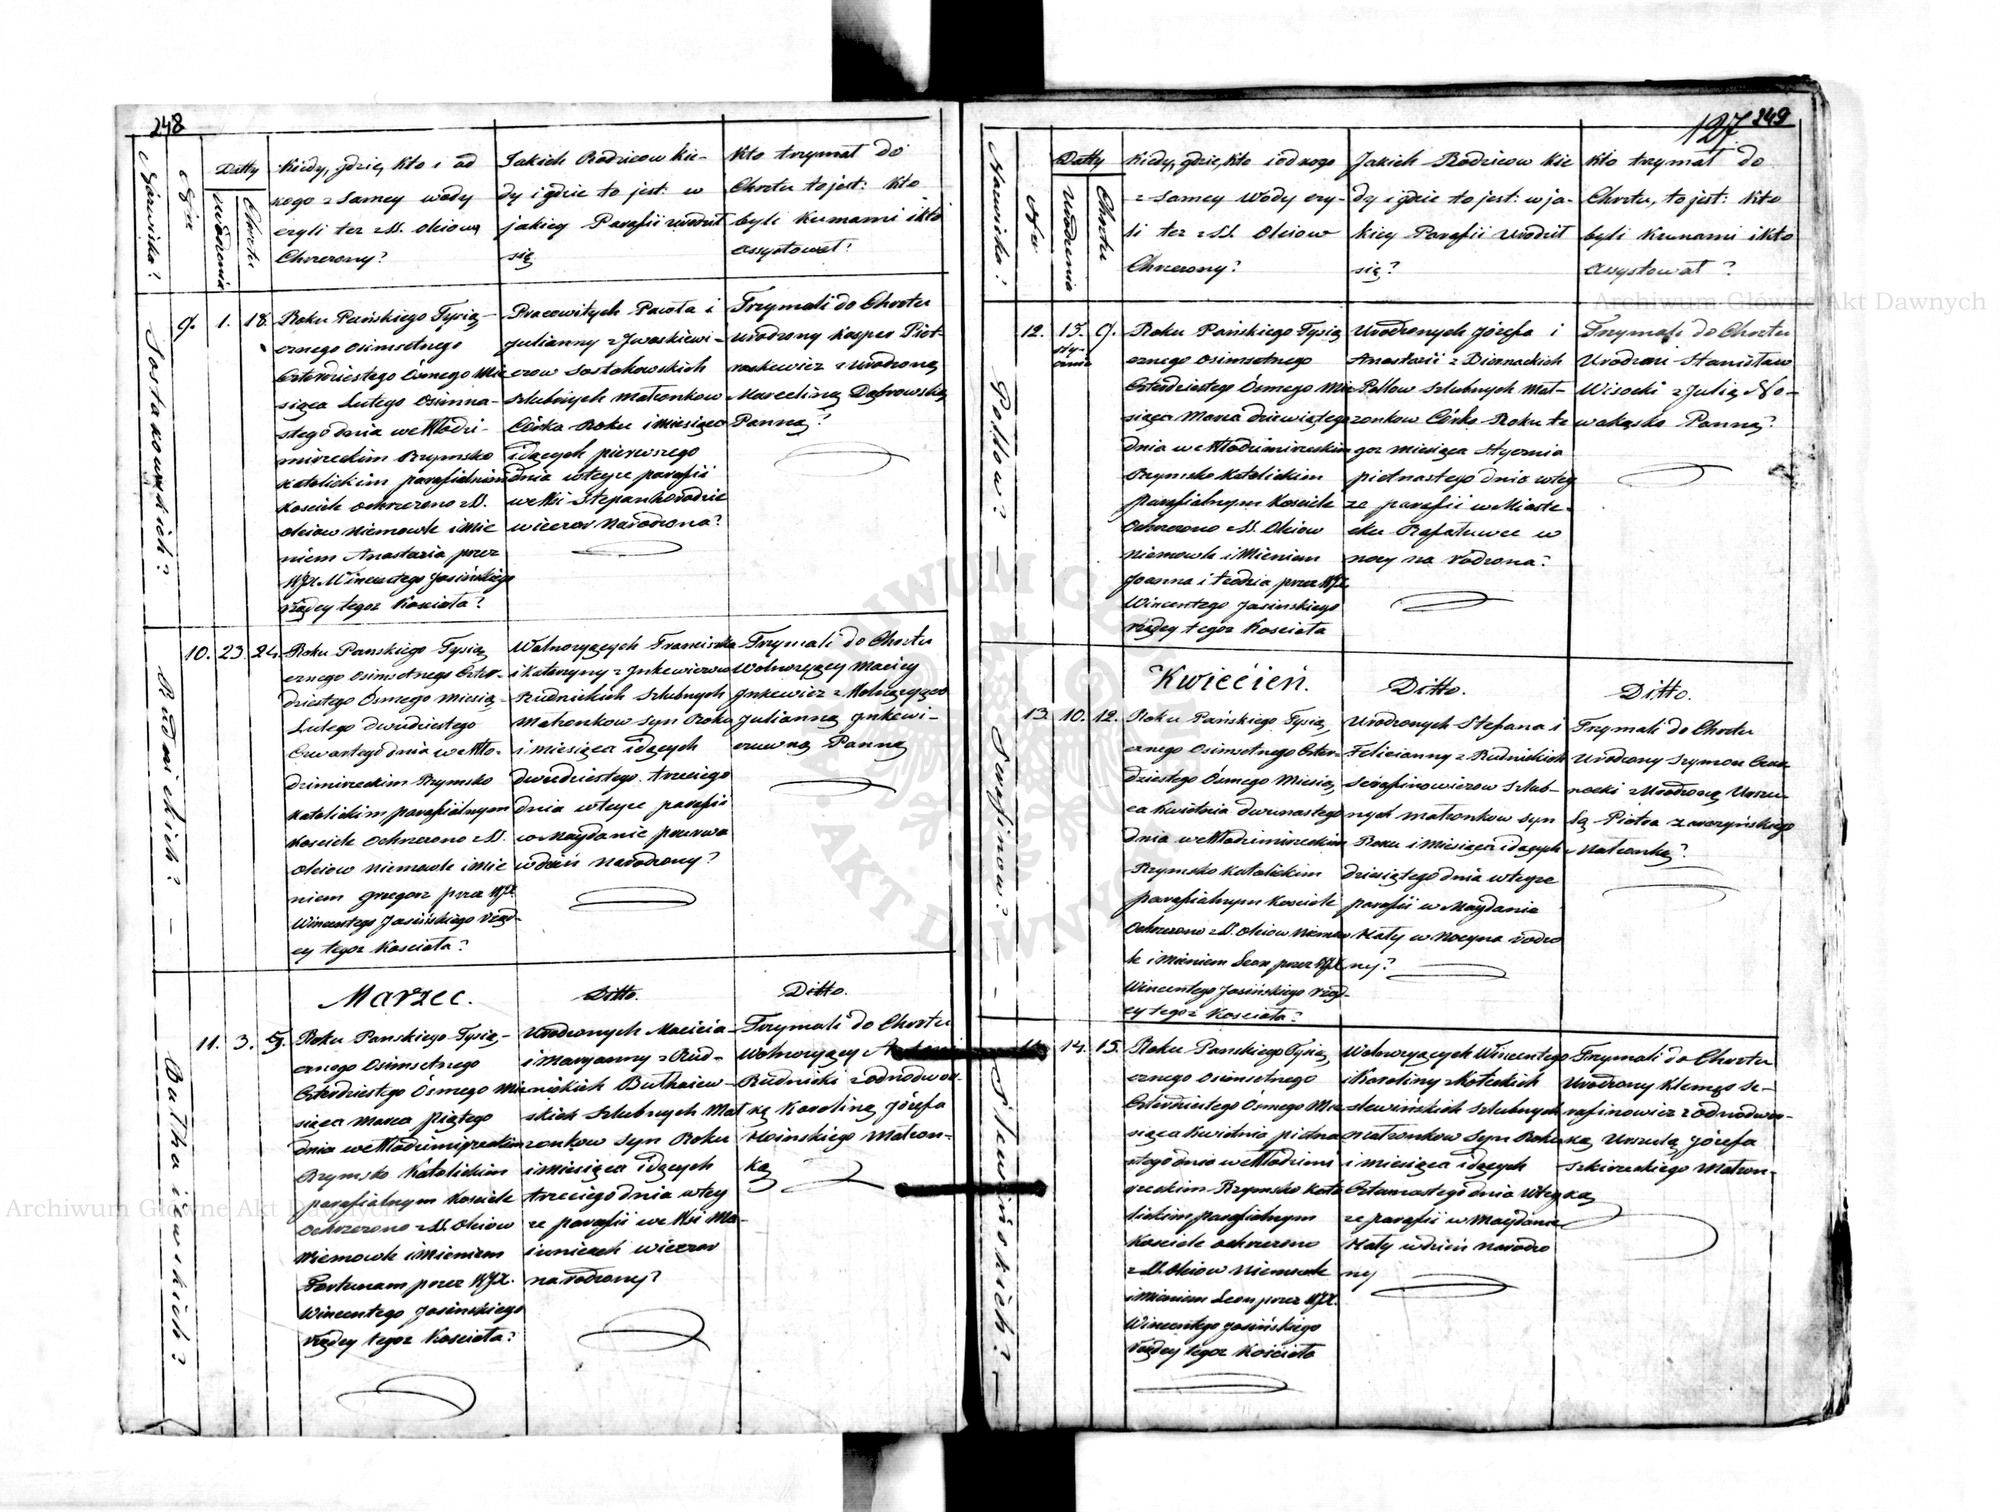 248
Nazwiska?
Nru
Datty
Urodzenia
Chrztu
Kiedy, gdzie, kto i od
kogo z Samey wody
czyli też z SS. Oleiow
Chrzczony?
Jakich Rodzicow kie-
dy i gdzie to jest: w
jakiey Parafii urodził
się
Kto trzymał do
Chrztu to jest: Kto
byli Kumami i kto
assystował?
Sostakowskich?
9. 1. 18.
Roku Pańskiego Tysią-
cznego Osimsetnego
Czterdziestego Ósmego Mie
siąca Lutego Osimna-
stego dnia we Włodzi-
mirzeckim Rzymsko
Katolickim parafialnym
Kosciele ochrzczono z SS.
Oleiow Niemowle i Mie
niem Anastazia przez
WJX Wincentego Jasińskiego
rządcy tegoz Koscioła?
Pracowitych Pawła i
Julianny z Iwaskiewi-
czow Sostakowskich
Szlubnych Małżonkow
Córka Roku i miesiąca
idących pierwszego
dnia w teyże parafii
we Wsi Stepanhorodzie
wieczor Narodzona?
Trzymali do Chrztu
Urodzony Kasper Piot-
raskewicz z Urodzoną
Marcelliną Dąbrowską
Panną?
Rudnickich? —
10. 23. 24.
Roku Panskiego Tysią
cznego Osimsetnego Czter-
dziestego Ósmego Miesią-
Lutego dwudziestego
Czwartego dnia we Wło-
dzimirzeckim Rzymsko
Katolickim parafialnym
Kosciele Ochrzczono z SS.
Oleiow Niemowle i Mie
niem Grzegorz przez WJX.
Wincentego Jasińskiego rząd-
cy tegoz Kosciola?
Wolnorzących Franciszka
i Katarzyny z Jnkewiczow
Rudnickich Szlubnych
Małżonkow Syn Roku
i miesiąca idących
dwudziestego trzeciego
dnia w teyże parafii
w Maydanie
w dzień Narodzony?
Trzymali do Chrztu
Wolnorzący Maciey
Jnkewicz z Wolnorzącą
Julianną Jnkewi-
czuwną Panną
Marzec. Ditto. Ditto.
Butkaiewskich?
11. 3. 5.
Roku Panskiego Tysią-
cznego Osimsetnego
Czterdziestego Ósmego Mie
siąca Marca piątego
dnia we Włodzimirzeckim
Rzymsko Katolickim
parafialnym Kosciele
Ochrzczono z SS. Oleiow
Niemowle i Mieniem
Fortunam przez WJX.
Wincentego Jasińskiego
rządcy tegoz Kosciola?
Urodzonych Macieia
i Maryanny z Rud-
nickich Butkaiew-
skich Szlubnych Mał
żonkow Syn Roku
i miesiąca idących
trzeciego dnia w tey
że parafii we Wsi
wieczor
narodzony?
Trzymali do Chrztu
Wolnorzący
Rudnicki z odnodwor-
ką Karoliną Józefa
Małżon-
ką
127 249
Nazwiska?
Nru
Datty
Urodzenia
Chrztu
Kiedy, gdzie, kto i od kogo
z Samey Wody czy-
li też z SS. Oleiow
Chrzczony?
Jakich Rodzicow kie
dy i gdzie to jest: w ja-
kiey Parafii Urodził
się?
Kto trzymał do
Chrztu, to jest: Kto
byli Kumami i kto
assystował?
Pollow? —
12. 15. Stycznia 9.
Roku Pańskiego Tysią
cznego Osimsetnego
Czterdziestego Ósmego Mie
siąca Marca dziewiątego
dnia we Włodzimirzeckim
Rzymsko Katolickim
Parafialnym Kosciele
Ochrzczono z SS. Oleiow
Niemowle i Mieniem
Joanna i przez WJX
Wincentego Jasinskiego
rządcy tegoz Kosciola
Urodzonych Józefa i
Anastazii z Biernackich
Pollow Szlubnych Mał-
żonkow Córka Roku te
goz miesiąca Stycznia
piętnastego dnia w tey
że parafii w Miaste-
czku Rafałuwce w
nocy na rodzona?
Trzymali do Chrztu
Urodzoni Stanisław
Wisocki z Julią No-
wakąsko Panną?
Kwiecień. Ditto. Ditto.
Serafinow? —
13. 10. 12.
Roku Pańskiego Tysią
cznego Osimsetnego Czter-
dziestego Ósmego Miesią
ca Kwietnia dwunastego
dnia we Włodzimirzeckim
Rzymsko Katolickim
parafialnym Kosciele
Ochrzczono z SS. Oleiow Niemow
le i Mieniem Leon przez WJX
Wincentego Jasińskiego rząd-
cy tegoz Kosciola?
Urodzonych Stefana i
Felicianny z Rudnickich
Serafinowiczow Szlub-
nych małżonkow Syn
Roku i Miesiąca idących
dziesiątego dnia w teyże
parafii w Maydanie
Mały w Nocy na rodzo
ny?
Trzymali do Chrztu
Urodzony Szymon
z Urodzoną Urszu-
lą Piotra Zaworzyńskiego
Małżonką?
Slewińskich? —
14. 14. 15.
Roku Panskiego Tysią
cznego Osimsetnego
Czterdziestego Ósmego Mie
siąca Kwietnia pietna
stego dnia we Włodzimi
rzeckim Rzymsko Kato
lickim parafialnym
Kosciele ochrzczono
z SS. Oleiow Niemowle
i Mieniem Leon przez WJX.
Wincentego Jasińskiego
rządcy tegoz Kosciola
Wolnorzących Wincentego
i Karoliny z
Slewińskich Szlubnych
małżonkow Syn Roku
i miesiąca idących
Czternastego dnia w tey
że parafii w Maydanie
Mały w dzień narodzo
ny
Trzymali do Chrztu
Urodzony Klemęs Se-
rafinowicz z odnodwor-
ką Urszulą Józefa
Szkirzeckiego Małżon-
ką
Archiwum Główne Akt Dawnych
Archiwum Główne Akt Dawnych